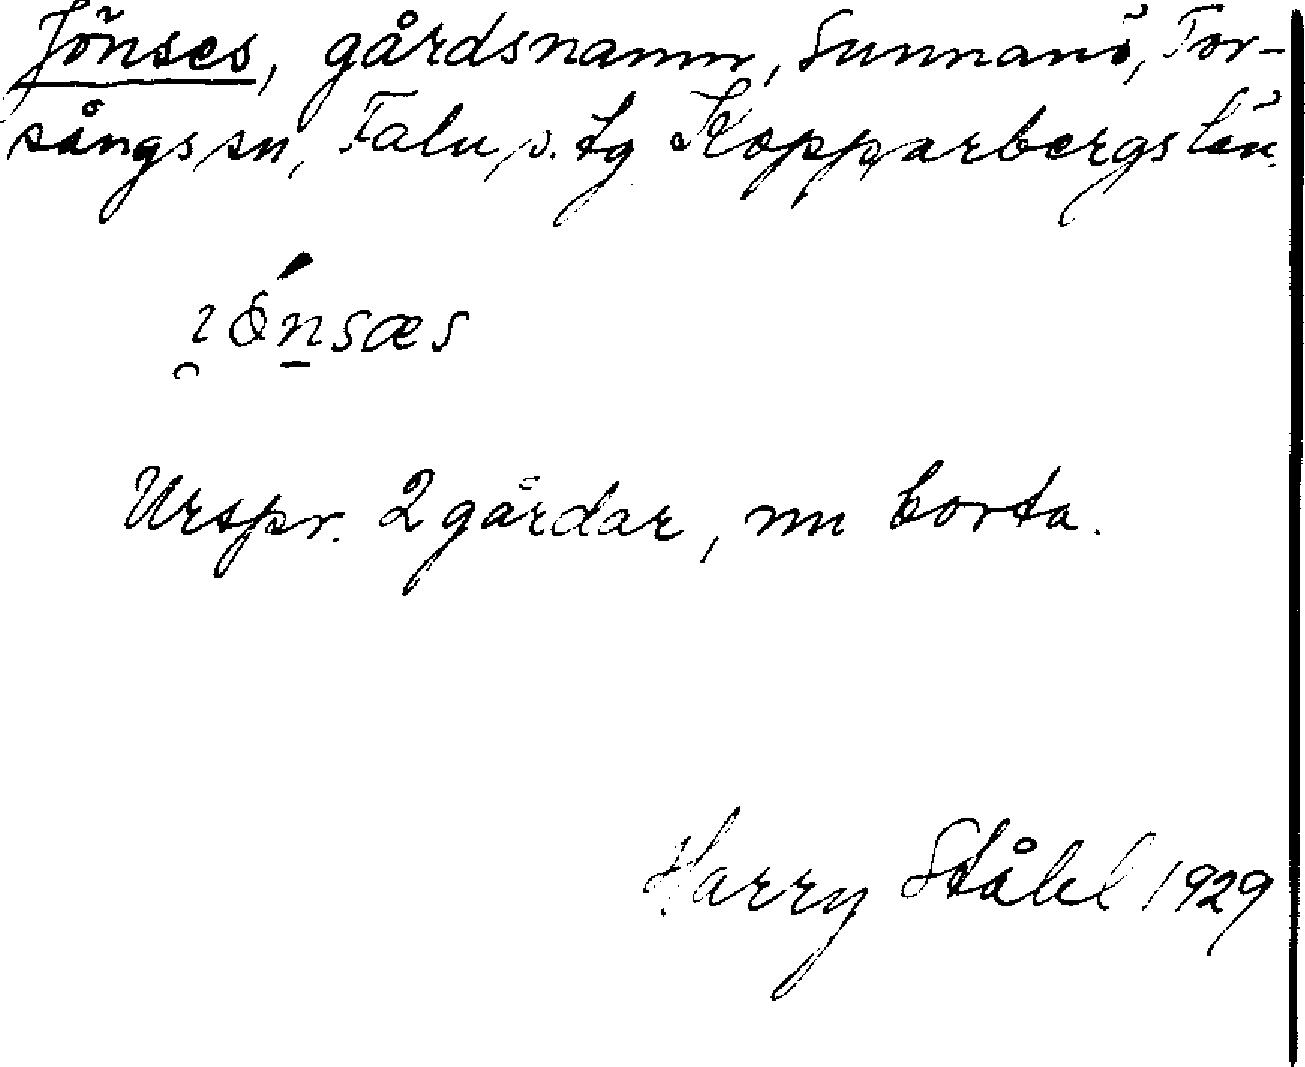 Jönses, gårdsnamn, Sunnanö, Tor-
sångs sn, Falu s. tg Kopparbergs län.
ɩ̯ǿn̲sæs
Urspr. 2 gårdar, nu borta.
Harry Ståhl 1929